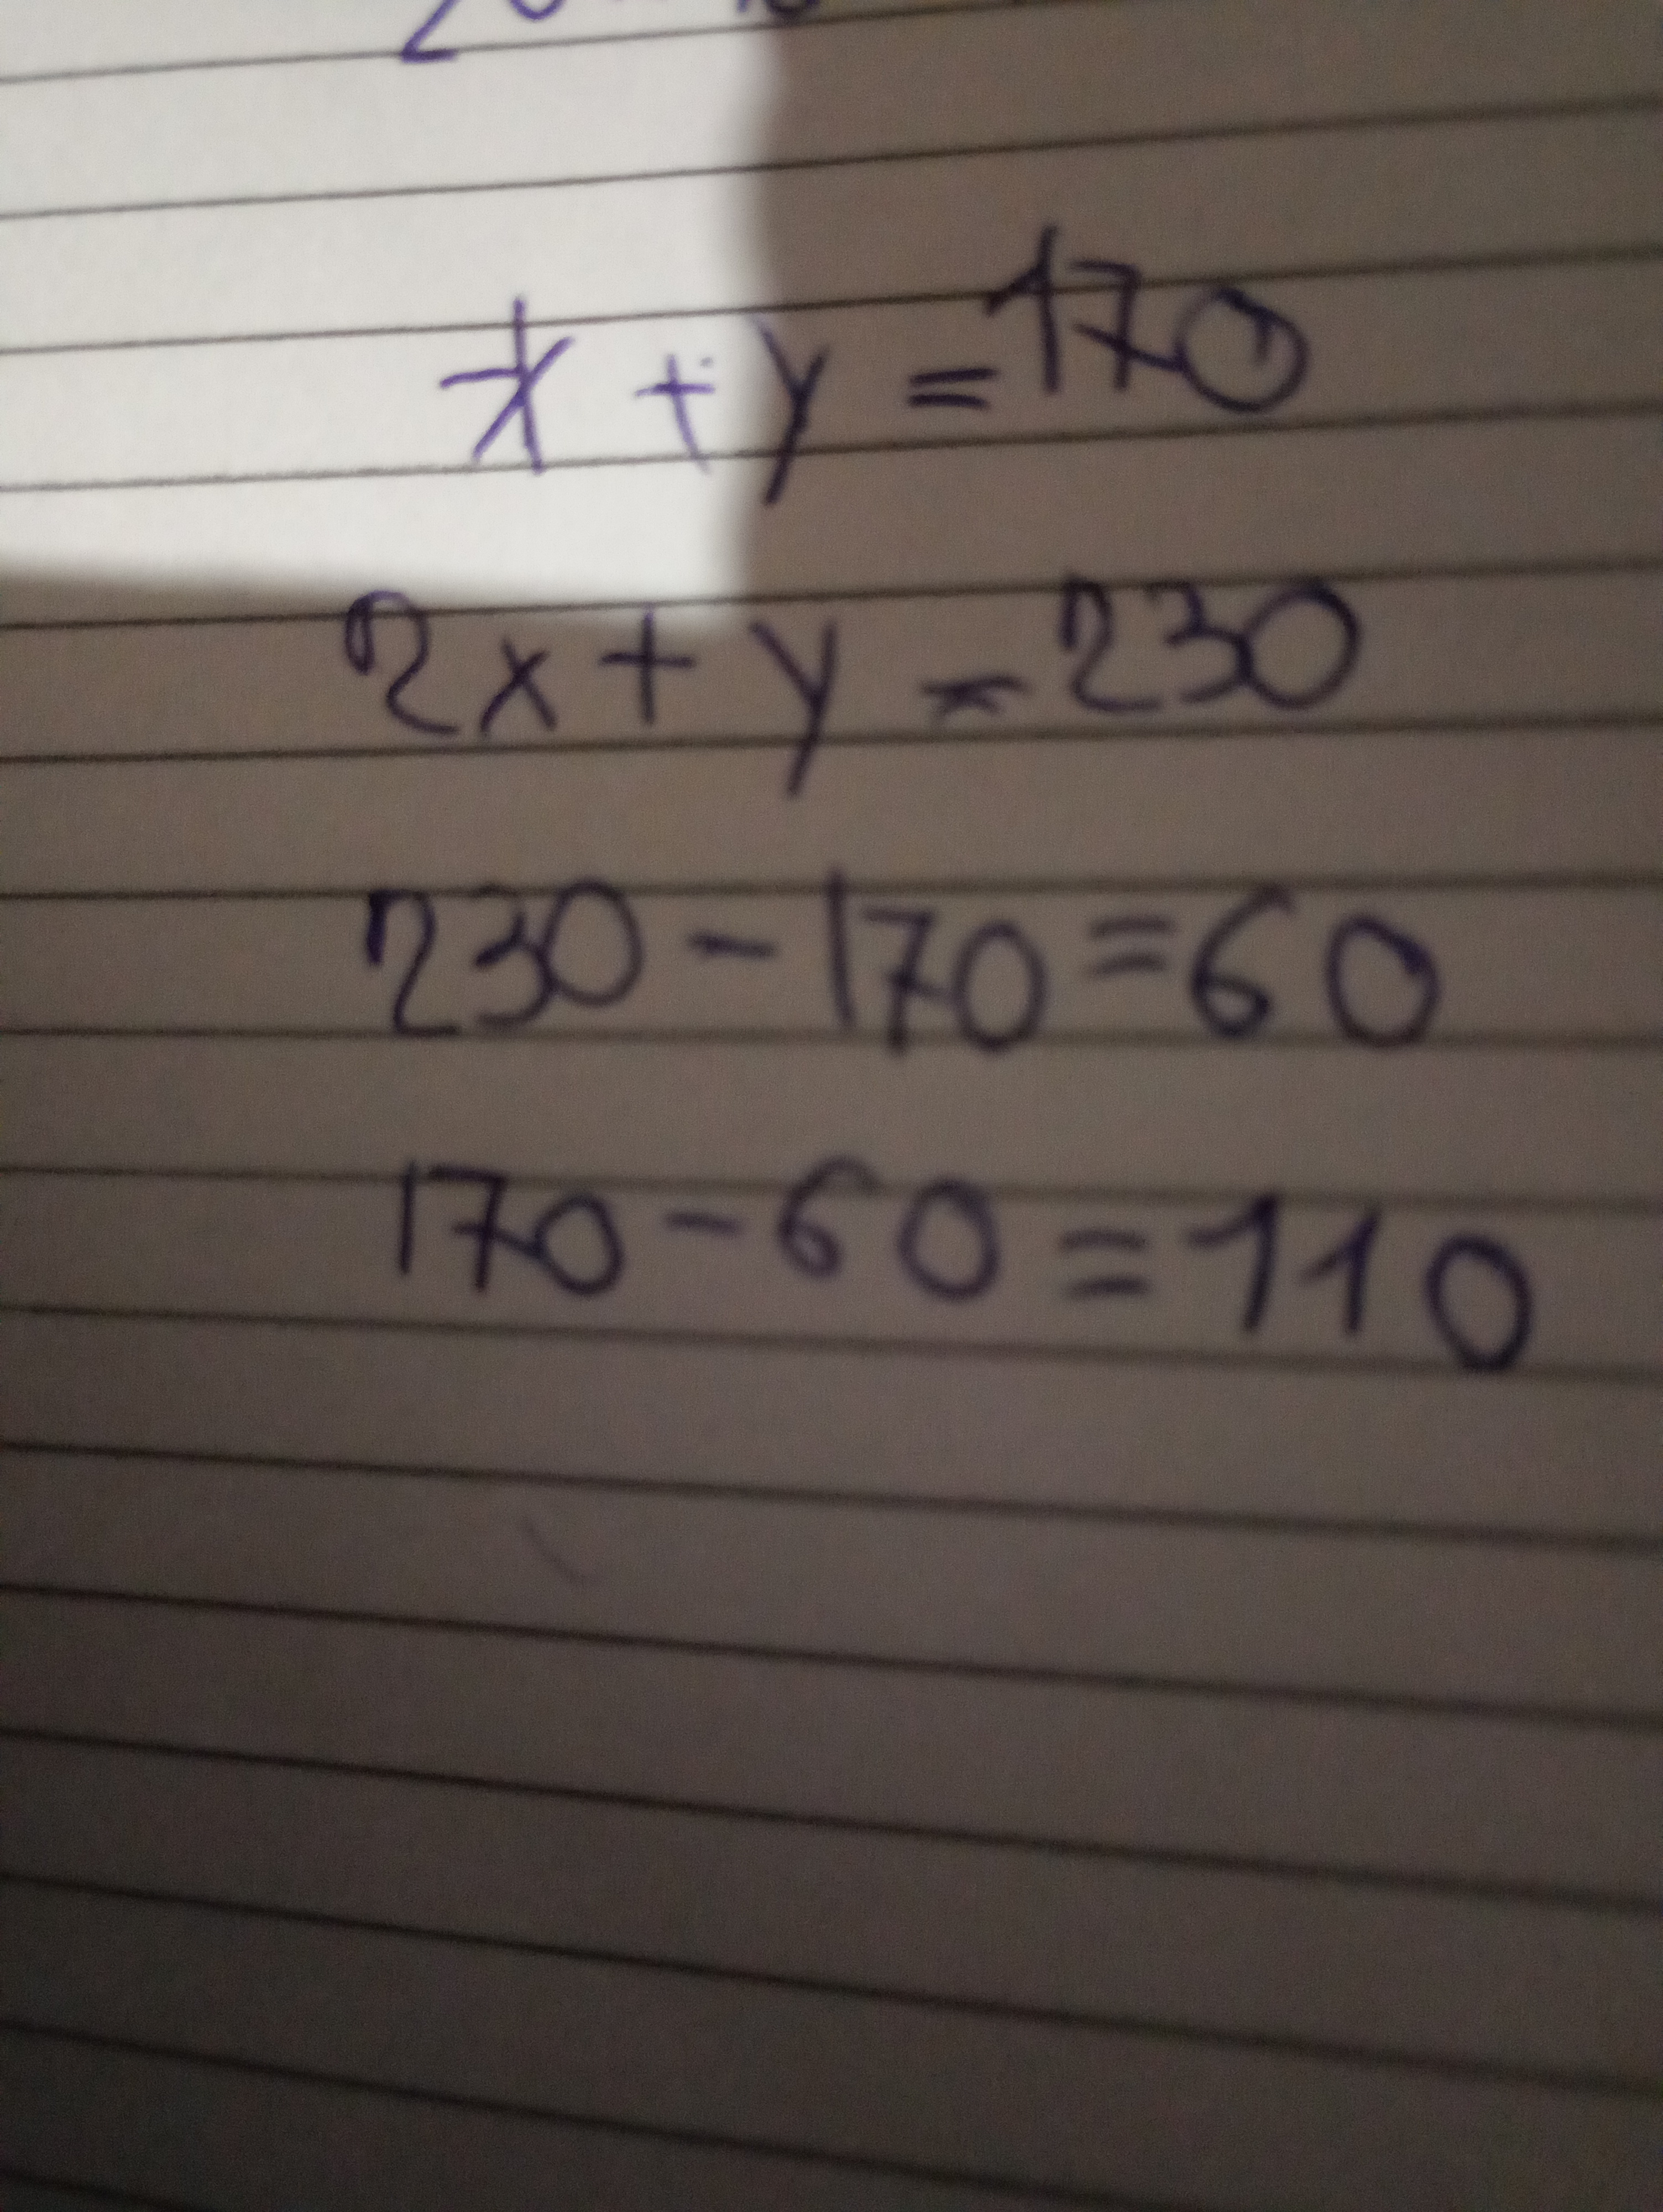 x + y = 170
2x + y = 230
230 - 170 = 60
170 - 60 = 110